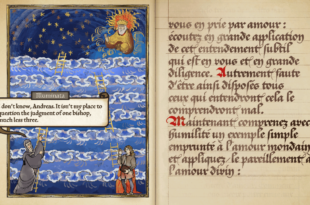 Illuminata
don't know, Andreas. It isn't my place to
question the judgment of one bishop,
much less three.
vous en prie par amour :
écoutez en grande application
de cet entendement subtil
qui est en vous et en grande
diligence. Autrement faute
d'être ainsi disposés tous
ceux qui entendront cela le
comprendront mal.
Maintenant comprenez avec
humilité un exemple simple
emprunté à l'amour mondain
et appliquez-le pareillement à
l'amour divin :